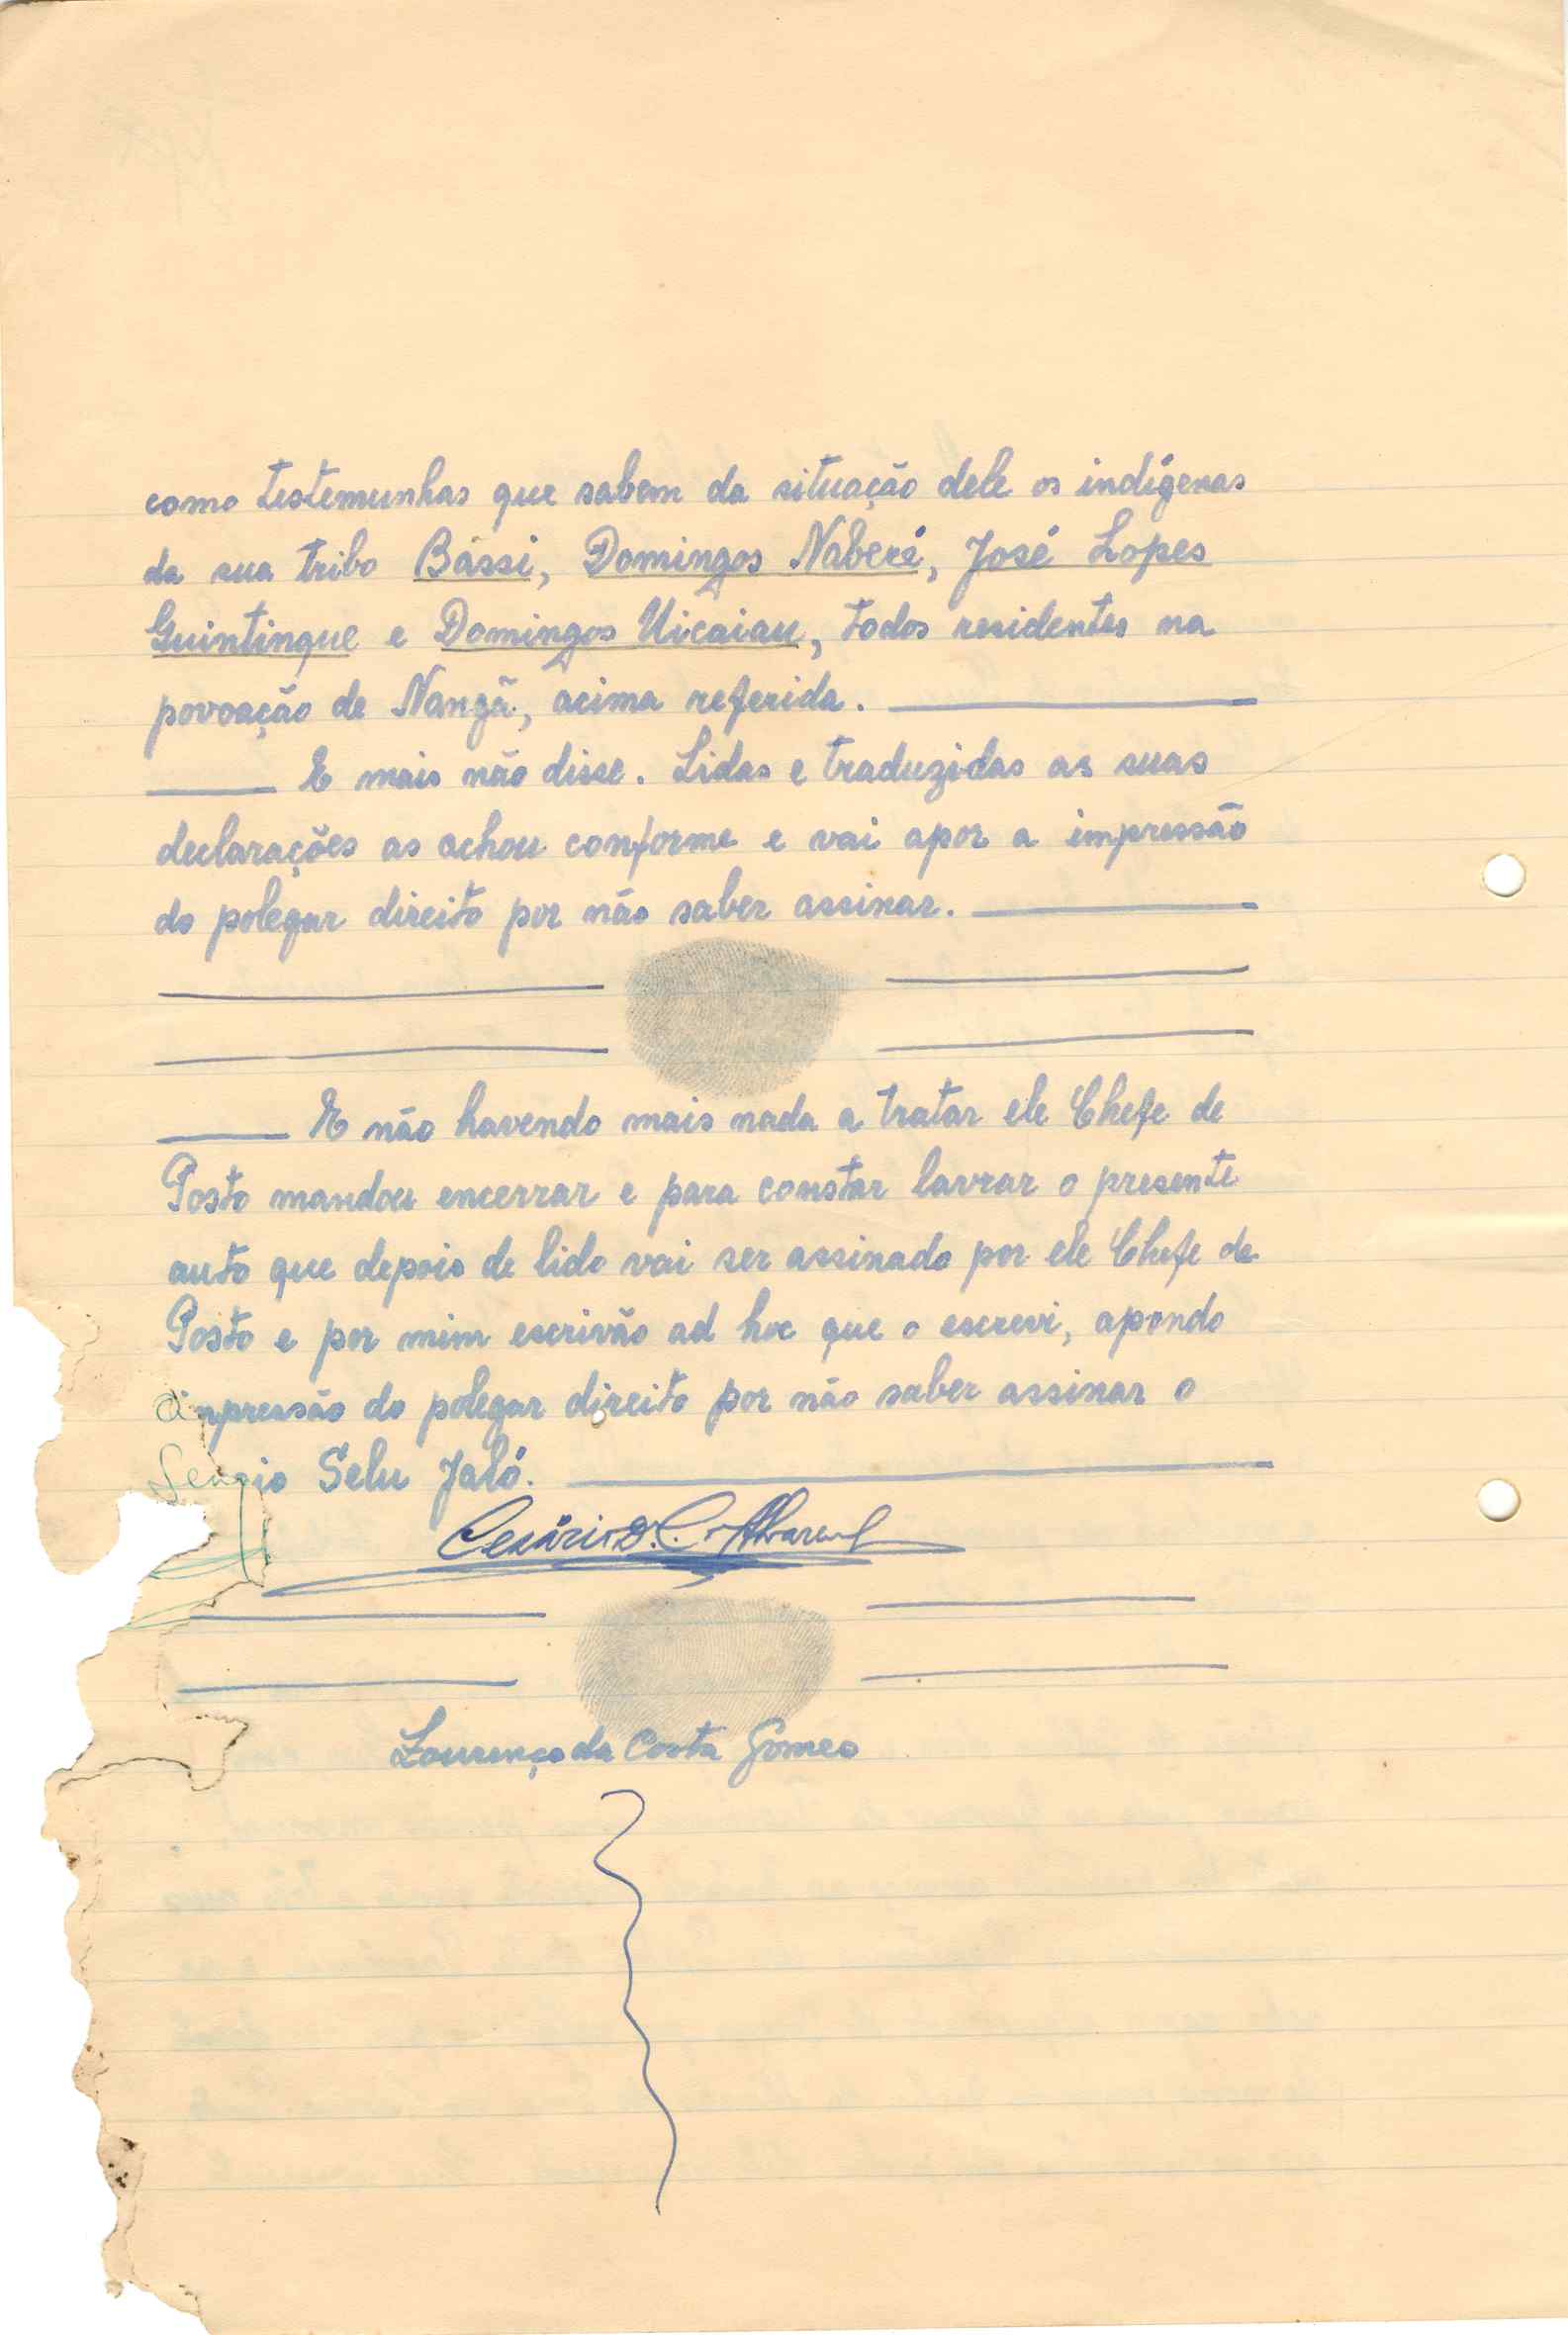 como testemunhas que sabem da situação dele os indígenas
da sua tribo Bássi, Domingos Naberé, José Lopes
Guintingue e Domingos Uicaiau, todos residentes na
povoação de Nangã, acima referida.
E mais não disse. Lidas e traduzidas as suas
declarações as achou conforme e vai apor a impressão
do polegar direito por não saber assinar.
E não havendo mais nada a tratar ele Chefe de
Posto mandou encerrar e para constar lavrar o presente
auto que depois de lido vai ser assinado por ele Chefe de
Posto e por mim escrivão ad hoc que o escrevi, apondo
impressão do polegar direito por não saber assinar o
Sergio Selu Jaló.
Cesário D. C. Alvarenga
Lourenço da Costa Gomes